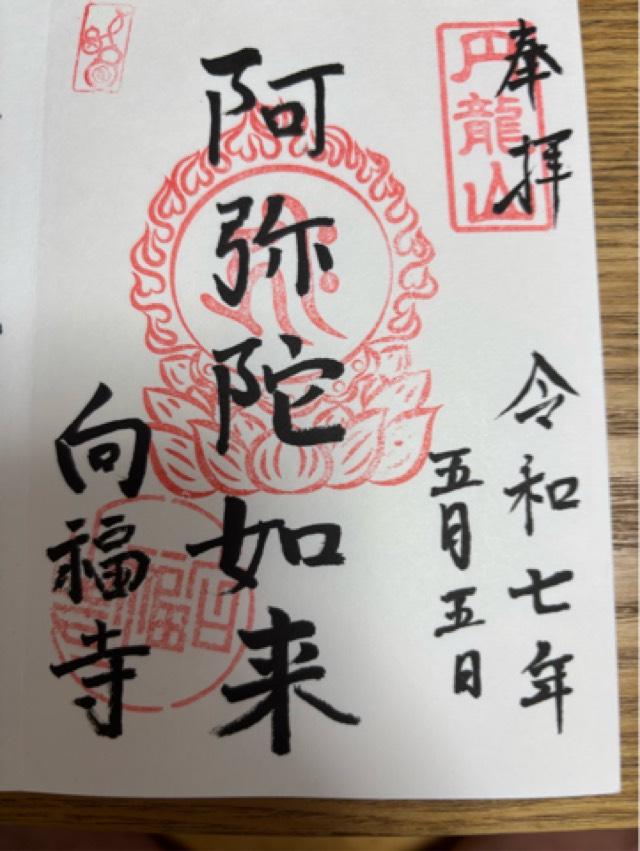 奉拝
円龍山
令和七年
五月五日
阿弥陀如来
向福寺